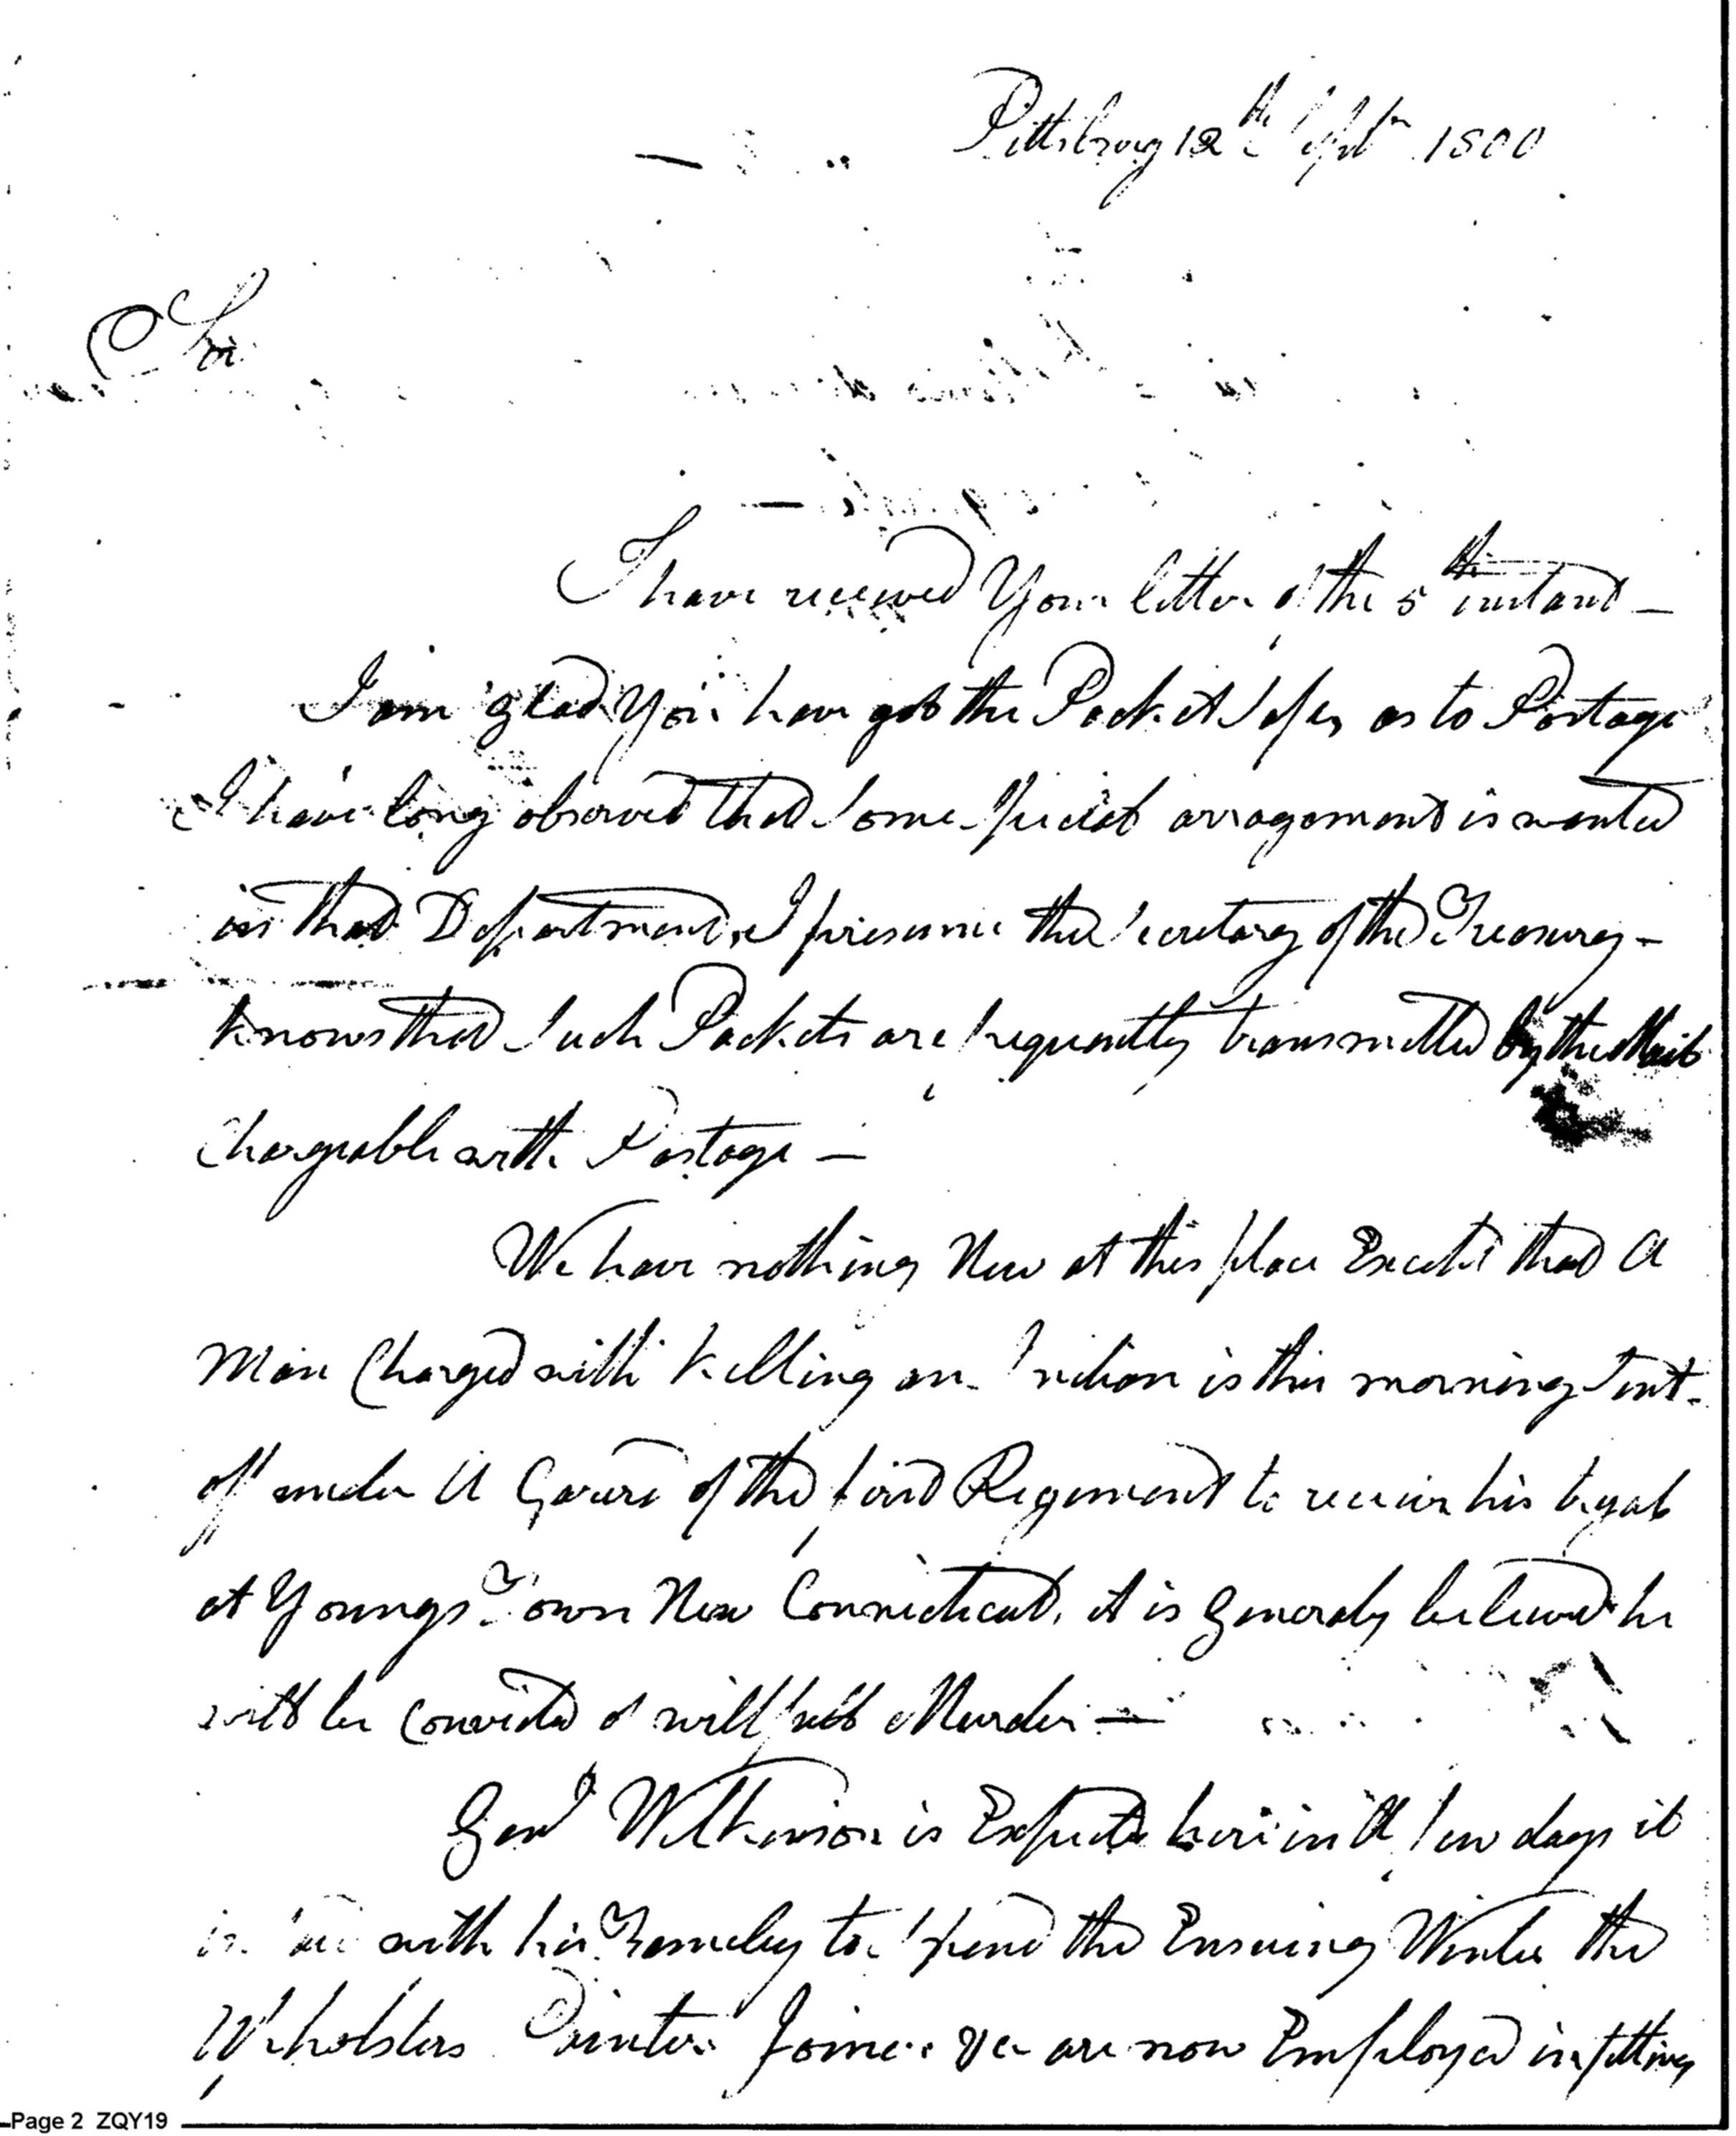 Pittsburg 12th Septr 1800
Sir
I have received Your letter of the 5th instant —
I am glad You have got the Packet safe, as to Postage
I have long observed that some special arragement is wanted
in that Department, I presume the Secretary of the Treasury —
knows that such Packets are frequently transmitted by the Mail
Chargeable with Postage —
We have nothing New at this place Except that A
Man Charged with killing an Indian is this morning sent
off under A Guard of the first Regement to receive his tryal
at Youngs Town New Connecticut, it is generaly believed he
will be Convicted of willfull Murder —
Genl Wilkinson is Expected here in A few days it
is said with his Famely to spend the Ensuing Winter the
Upholsters Painters Joiners &c are now Employed in fitting
Page 2 ZQY19